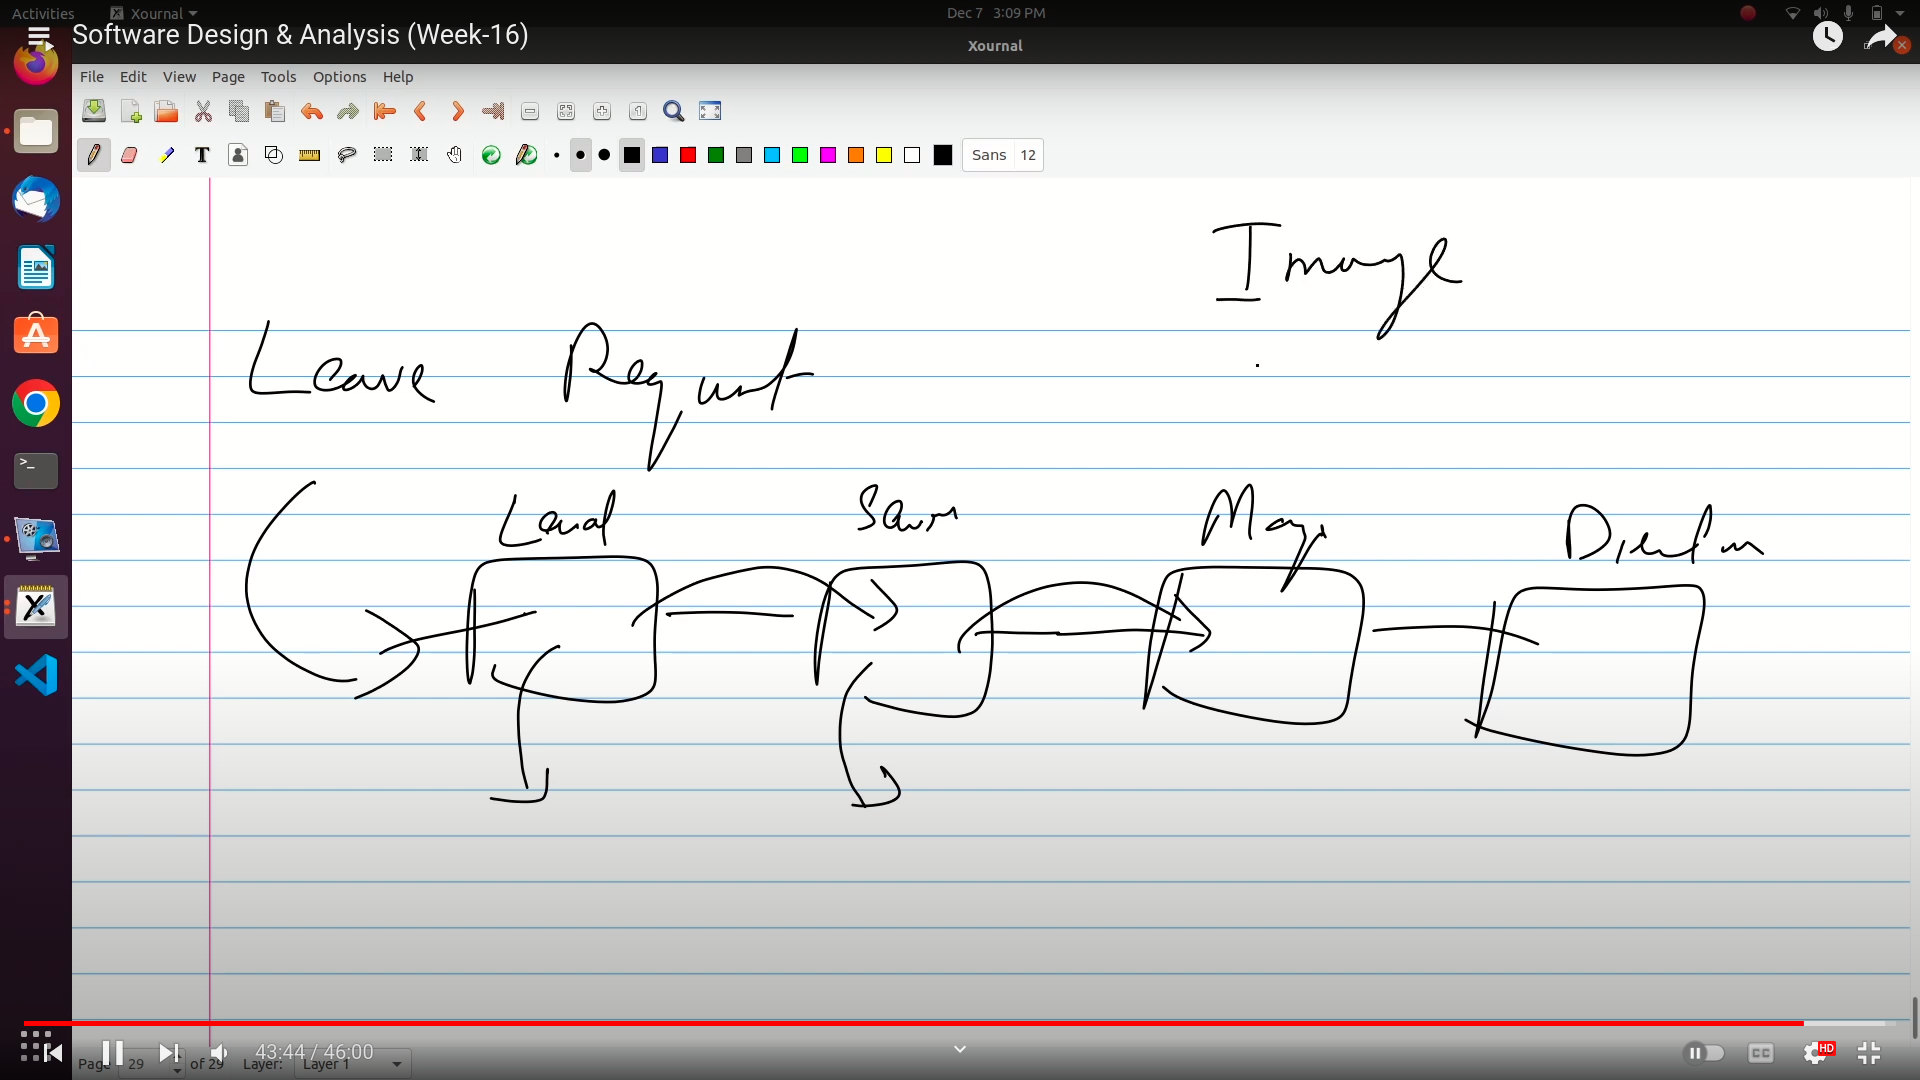 Activities Xournal Dec 7 3:09 PM
Software Design & Analysis (Week-16)
Xournal
File Edit View Page Tools Options Help
T Sans 12
Image
Leave Request
Lead
Page 29 of 29 Layer: Layer 1
43:44 / 46:00
CC HD